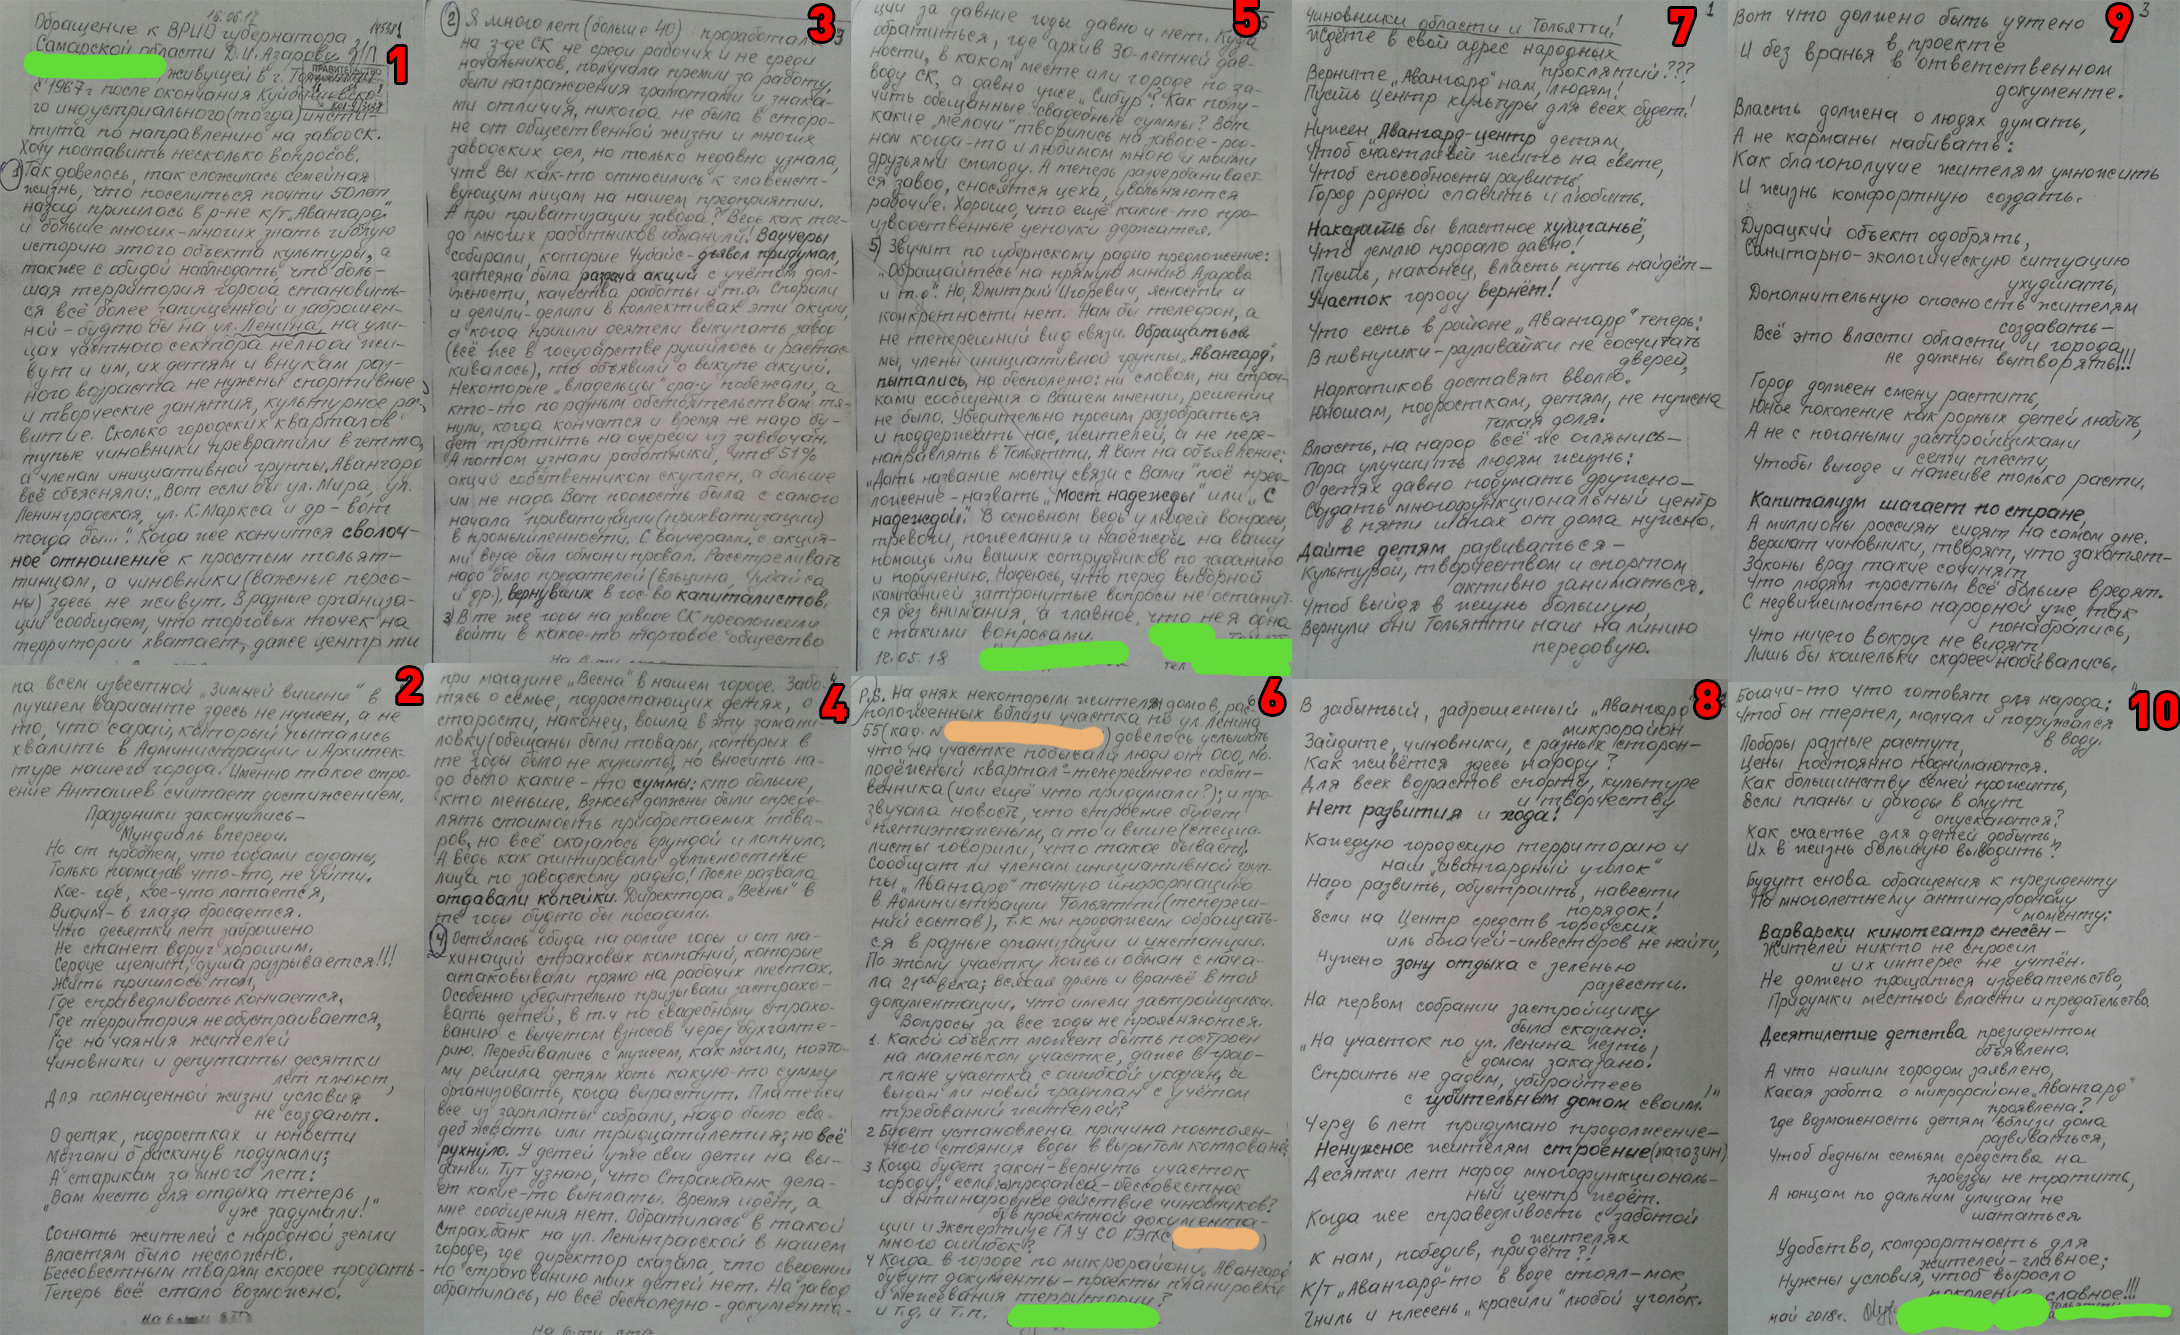 1
16.05.18
Обращение к ВРИО губернатора
Самарской области Д.И. Азарову
живущей в г.
с 1967г после окончания Куйбышевско-
го индустриального (тогда) инсти-
тута по направлению на завод СК.
Хочу поставить несколько вопросов.
1) Так довелось, так сложилась семейная
жизнь, что поселиться почти 50 лет
назад пришлось в р-не к/т „Авангард"
и больше многих-многих знать гиблую
историю этого объекта культуры, а
также с обидой наблюдать, что боль-
шая территория города становить-
ся всё более запущенной и заброшен-
ной – будто бы на ул. Ленина, на ули-
цах частного сектора нелюди жи-
вут и им, их детям и внукам раз-
ного возраста не нужны спортивные
и творческие занятия, культурное раз-
витие. Сколько городских кварталов
тупые чиновники превратили в гетто,
а членам инициативной группы „Авангард
всё объясняли: „Вот если бы ул. Мира, ул.
Ленинградская, ул. К. Маркса и др – вот
тогда бы...". Когда же кончится сволоч-
ное отношение к простым тольят-
тинцам, а чиновники (важные персо-
ны) здесь не живут. В разные организа-
ции сообщаем, что торговых точек на
территории хватает, даже центр ти
2
па всем известной „Зимней вишни" в
лучшем варианте здесь не нужен, а не
то, что сарай, который пытались
хвалить в Администрации и Архитек-
туре нашего города. Именно такое стро-
ение Анташев считает достижением.
Праздники закончились –
Мундиаль впереди.
Но от проблем, что годами созданы,
Только подмазав что-то, не уйти.
Кое-где, кое-что латается,
Видим – в глаза бросается.
Что десятки лет заброшено
Не станет вдруг хорошим.
Сердце щемит, душа разрывается!!!
Жить пришлось там,
Где справедливость кончается,
Где территория не обустраивается,
Где на чаяния жителей
Чиновники и депутаты десятки
лет плюют,
Для полноценной жизни условия
не создают.
О детях, подростках и юности
Мозгами б раскинув подумали;
А старикам за много лет:
„Вам место для отдыха теперь
уж задумали!"
Согнать жителей с народной земли
Властям было несложно.
Бессовестным тварям скорее продать –
Теперь всё стало возможно.
3
2) Я много лет (больше 40) проработала
на з-де СК не среди рабочих и не среди
начальников, получала премии за работу,
были награждения грамотами и знака-
ми отличия, никогда не была в сторо-
не от общественной жизни и многих
заводских дел, но только недавно узнала,
что Вы как-то относились к главенст-
вующим лицам на нашем предприятии.
А при приватизации завода? Ведь как тог-
да многих работников обманули! Ваучеры
собирали, которые Чубайс – дьявол придумал,
затеяна была раздача акций с учётом дол-
жности, качества работы и т.д. Спорили
и делили-делили в коллективах эти акции,
а когда пришли деятели выкупать завод
(всё же в государстве рушилось и растас-
кивалось), то объявили о выкупе акций.
Некоторые „владельцы" сразу побежали, а
кто-то по разным обстоятельствам тя-
нули, когда кончатся и время не надо бу-
дет тратить на очереди из заводчан.
А потом узнали работники, что 51%
акций собственником скуплен, а больше
им не надо. Вот подлость была с самого
начала приватизации (прихватизации)
в промышленности. С ваучерами, с акция-
ми везде был обман и провал. Расстреливать
надо было предателей (Ельцина, Чубайса
и др.), вернувших в гос-во капиталистов.
3) В те же годы на заводе СК предложили
войти в какое-то торговое общество
4
при магазине „Весна" в нашем городе. Забо-
тясь о семье, подрастающих детях, о
старости, наконец, вошла в эту замани-
ловку (обещаны были товары, которых в
те годы было не купить, но вносить на-
до было какие-то суммы: кто больше,
кто меньше. Взносы должны были опреде-
лять стоимость приобретаемых това-
ров, но всё оказалось ерундой и лопнуло.
А ведь как агитировали должностные
лица по заводскому радио! После развала
отдавали копейки. Директора „Весны" в
те годы будто бы посадили.
4) Осталась обида на долгие годы и от ма-
хинаций страховых компаний, которые
атаковывали прямо на рабочих местах.
Особенно убедительно призывали застрахо-
вать детей, в т.ч по свадебному страхо-
ванию с вычетом взносов через бухгалте-
рию. Перебивались с мужем, как могли, поэто-
му решила детям хоть какую-то сумму
организовать, когда вырастут. Платежи
все из зарплаты собрали, надо было сва-
деб ждать или тридцатилетия; но всё
рухнуло. У детей уже свои дети на вы-
данье. Тут узнаю, что Страхбанк дела-
ет какие-то выплаты. Время идёт, а
мне сообщения нет. Обратилась в такой
Страхбанк на ул. Ленинградской в нашем
городе, где директор сказала, что сведений
по страхованию моих детей нет. На завод
обратилась, но всё бесполезно – документа-
5
ции за давние годы давно и нет. Куда
обратиться, где архив 30-летней дав-
ности, в каком месте или городе по за-
воду СК, а давно уже „Сибур"? Как полу-
чить обещанные свадебные суммы? Вот
какие „мелочи" творились на заводе – род-
ном когда-то и любимом мною и моими
друзьями смолоду. А теперь раздербанивает-
ся завод, сносятся цеха, увольняются
рабочие. Хорошо, что ещё какие-то про-
изводственные цепочки держатся.
5) Звучит по губернскому радио предложение:
„Обращайтесь на прямую линию Азарова
и т.д". Но, Дмитрий Игоревич, ясности и
конкретности нет. Нам бы телефон, а
не теперешний вид связи. Обращаться
мы, члены инициативной группы „Авангард",
пытались, но бесполезно: ни словом, ни строч-
ками сообщения о Вашем мнении, решении
не было. Убедительно просим разобраться
и поддержать нас, жителей, а не пере-
направлять в Тольятти. А вот на объявление:
„Дать название мосту связи с Вами" моё пред-
ложение – назвать „Мост надежды" или „С
надеждой". В основном ведь у людей вопросы,
тревоги, пожелания и надежды на вашу
помощь или ваших сотрудников по заданию
и поручению. Надеюсь, что перед выборной
кампанией затронутые вопросы не останут-
ся без внимания, а главное, что не я одна
с такими вопросами.
12.05.18
тел
6
P.S. На днях некоторым жителям домов, рас-
положенных вблизи участка по ул. Ленина
55 (кад. N ) довелось услышать,
что на участке побывали люди от ООО „Мо-
лодёжный квартал" – теперешнего собст-
венника (или ещё что придумали?); и про-
звучала новость, что строение будет
пятиэтажным, а то и выше (специа-
листы говорили, что такое бывает).
Сообщат ли членам инициативной груп-
пы „Авангард" точную информацию
в Администрации Тольятти (тепереш-
ний состав), т.к мы продолжим обращать-
ся в разные организации и инстанции.
По этому участку ложь и обман с нача-
ла 21го века; всякая дрянь и враньё в той
документации, что имели застройщики.
Вопросы за все годы не проясняются.
1. Какой объект может быть построен
на маленьком участке, даже в град-
плане участка с ошибкой указан, и
выдан ли новый градплан с учётом
требований жителей?
2 Будет установлена причина постоян-
ного стояния воды в вырытом котловане
3 Когда будет закон – вернуть участок
городу, если продажа – бессовестное
и антинародное действие чиновников?
в проектной документа-
ции и Экспертизе ГАУ СО ГЭПС ( )
много ошибок?
4 Когда в городе по микрорайону „Авангард
будут документы – проекты планировки
и межевания территории?
и т.д. и т.п.
7
1
Чиновники области и Тольятти!
Ждёте в свой адрес народных
проклятий???
Верните „Авангард" нам, людям!
Пусть центр культуры для всех будет!
Нужен „Авангард-центр" детям,
Чтоб счастливей жить на свете,
Чтоб способности развить,
Город родной славить и любить.
Наказать бы властное хулиганьё,
Что землю продало давно!
Пусть, наконец, власть путь найдёт –
Участок городу вернёт!
Что есть в районе „Авангард" теперь:
В пивнушки-разливайки не сосчитать
дверей,
Наркотиков доставят вволю.
Юношам, подросткам, детям, не нужна
такая доля!
Власть, на народ всё же оглянись –
Пора улучшить людям жизнь:
О детях давно подумать дружно –
Создать многофункциональный центр
в пяти шагах от дома нужно.
Дайте детям развиваться –
Культурой, творчеством и спортом
активно заниматься.
Чтоб выйдя в жизнь большую,
Вернули они Тольятти наш на линию
передовую.
8
В забытый, заброшенный „Авангард"
микрорайон
Зайдите, чиновники, с разных сторон –
Как живётся здесь народу?
Для всех возрастов спорту, культуре
и творчеству
Нет развития и хода!
Каждую городскую территорию и
наш „авангардный уголок"
Надо развить, обустроить, навести
порядок!
Если на Центр средств городских
иль богачей-инвесторов не найти,
Нужно зону отдыха с зеленью
развести.
На первом собрании застройщику
было сказано:
„На участок по ул. Ленина лезть
с домом заказано!
Строить не дадим, убирайтесь
с губительным домом своим!"
Через 6 лет придумано продолжение –
Ненужное жителям строение (магазин)
Десятки лет народ многофункциональ-
ный центр ждёт.
Когда же справедливость с заботой
о жителях
К нам, победив, придёт?!
К/т „Авангард"-то в воде стоял – мок,
Гниль и плесень „красили" любой уголок.
9
3
Вот что должно быть учтено
в проекте
И без вранья в ответственном
документе.
Власть должна о людях думать,
А не карманы набивать:
Как благополучие жителям умножить
И жизнь комфортную создать.
Дурацкий объект одобрять,
Санитарно-экологическую ситуацию
ухудшать,
Дополнительную опасность жителям
создавать –
Всё это власти области и города
не должны вытворять!!!
Город должен смену растить,
Юное поколение как родных детей любить,
А не с погаными застройщиками
сети плести,
Чтобы выгоде и наживе только расти.
Капитализм шагает по стране,
А миллионы россиян сидят на самом дне.
Вершат чиновники, творят, что захотят –
Законы враз такие сочинят,
Что людям простым всё больше вредят.
С недвижимостью народной уж так
понабрались,
Что ничего вокруг не видят,
Лишь бы кошельки скорее набивались.
10
Богачи-то что готовят для народа:
Чтоб он терпел, молчал и погружался
в воду.
Поборы разные растут,
Цены постоянно поднимаются.
Как большинству семей прожить,
Если планы и доходы в омут
опускаются?
Как счастье для детей добыть,
Их в жизнь большую выводить?
Будут снова обращения к президенту
По многолетнему антинародному
моменту:
Варварски кинотеатр снесён –
Жителей никто не спросил
и их интерес не учтён.
Не должно прощаться издевательство,
Придумки местной власти и предательство.
Десятилетие детства президентом
объявлено.
А что нашим городом заявлено,
Какая забота о микрорайоне „Авангард"
проявлена?
Где возможность детям вблизи дома
развиваться,
Чтоб бедным семьям средства на
проезды не тратить,
А юнцам по дальним улицам не
шататься.
Удобство, комфортность для
жителей – главное;
Нужны условия, чтоб выросло
поколение славное!!!
май 2018г.